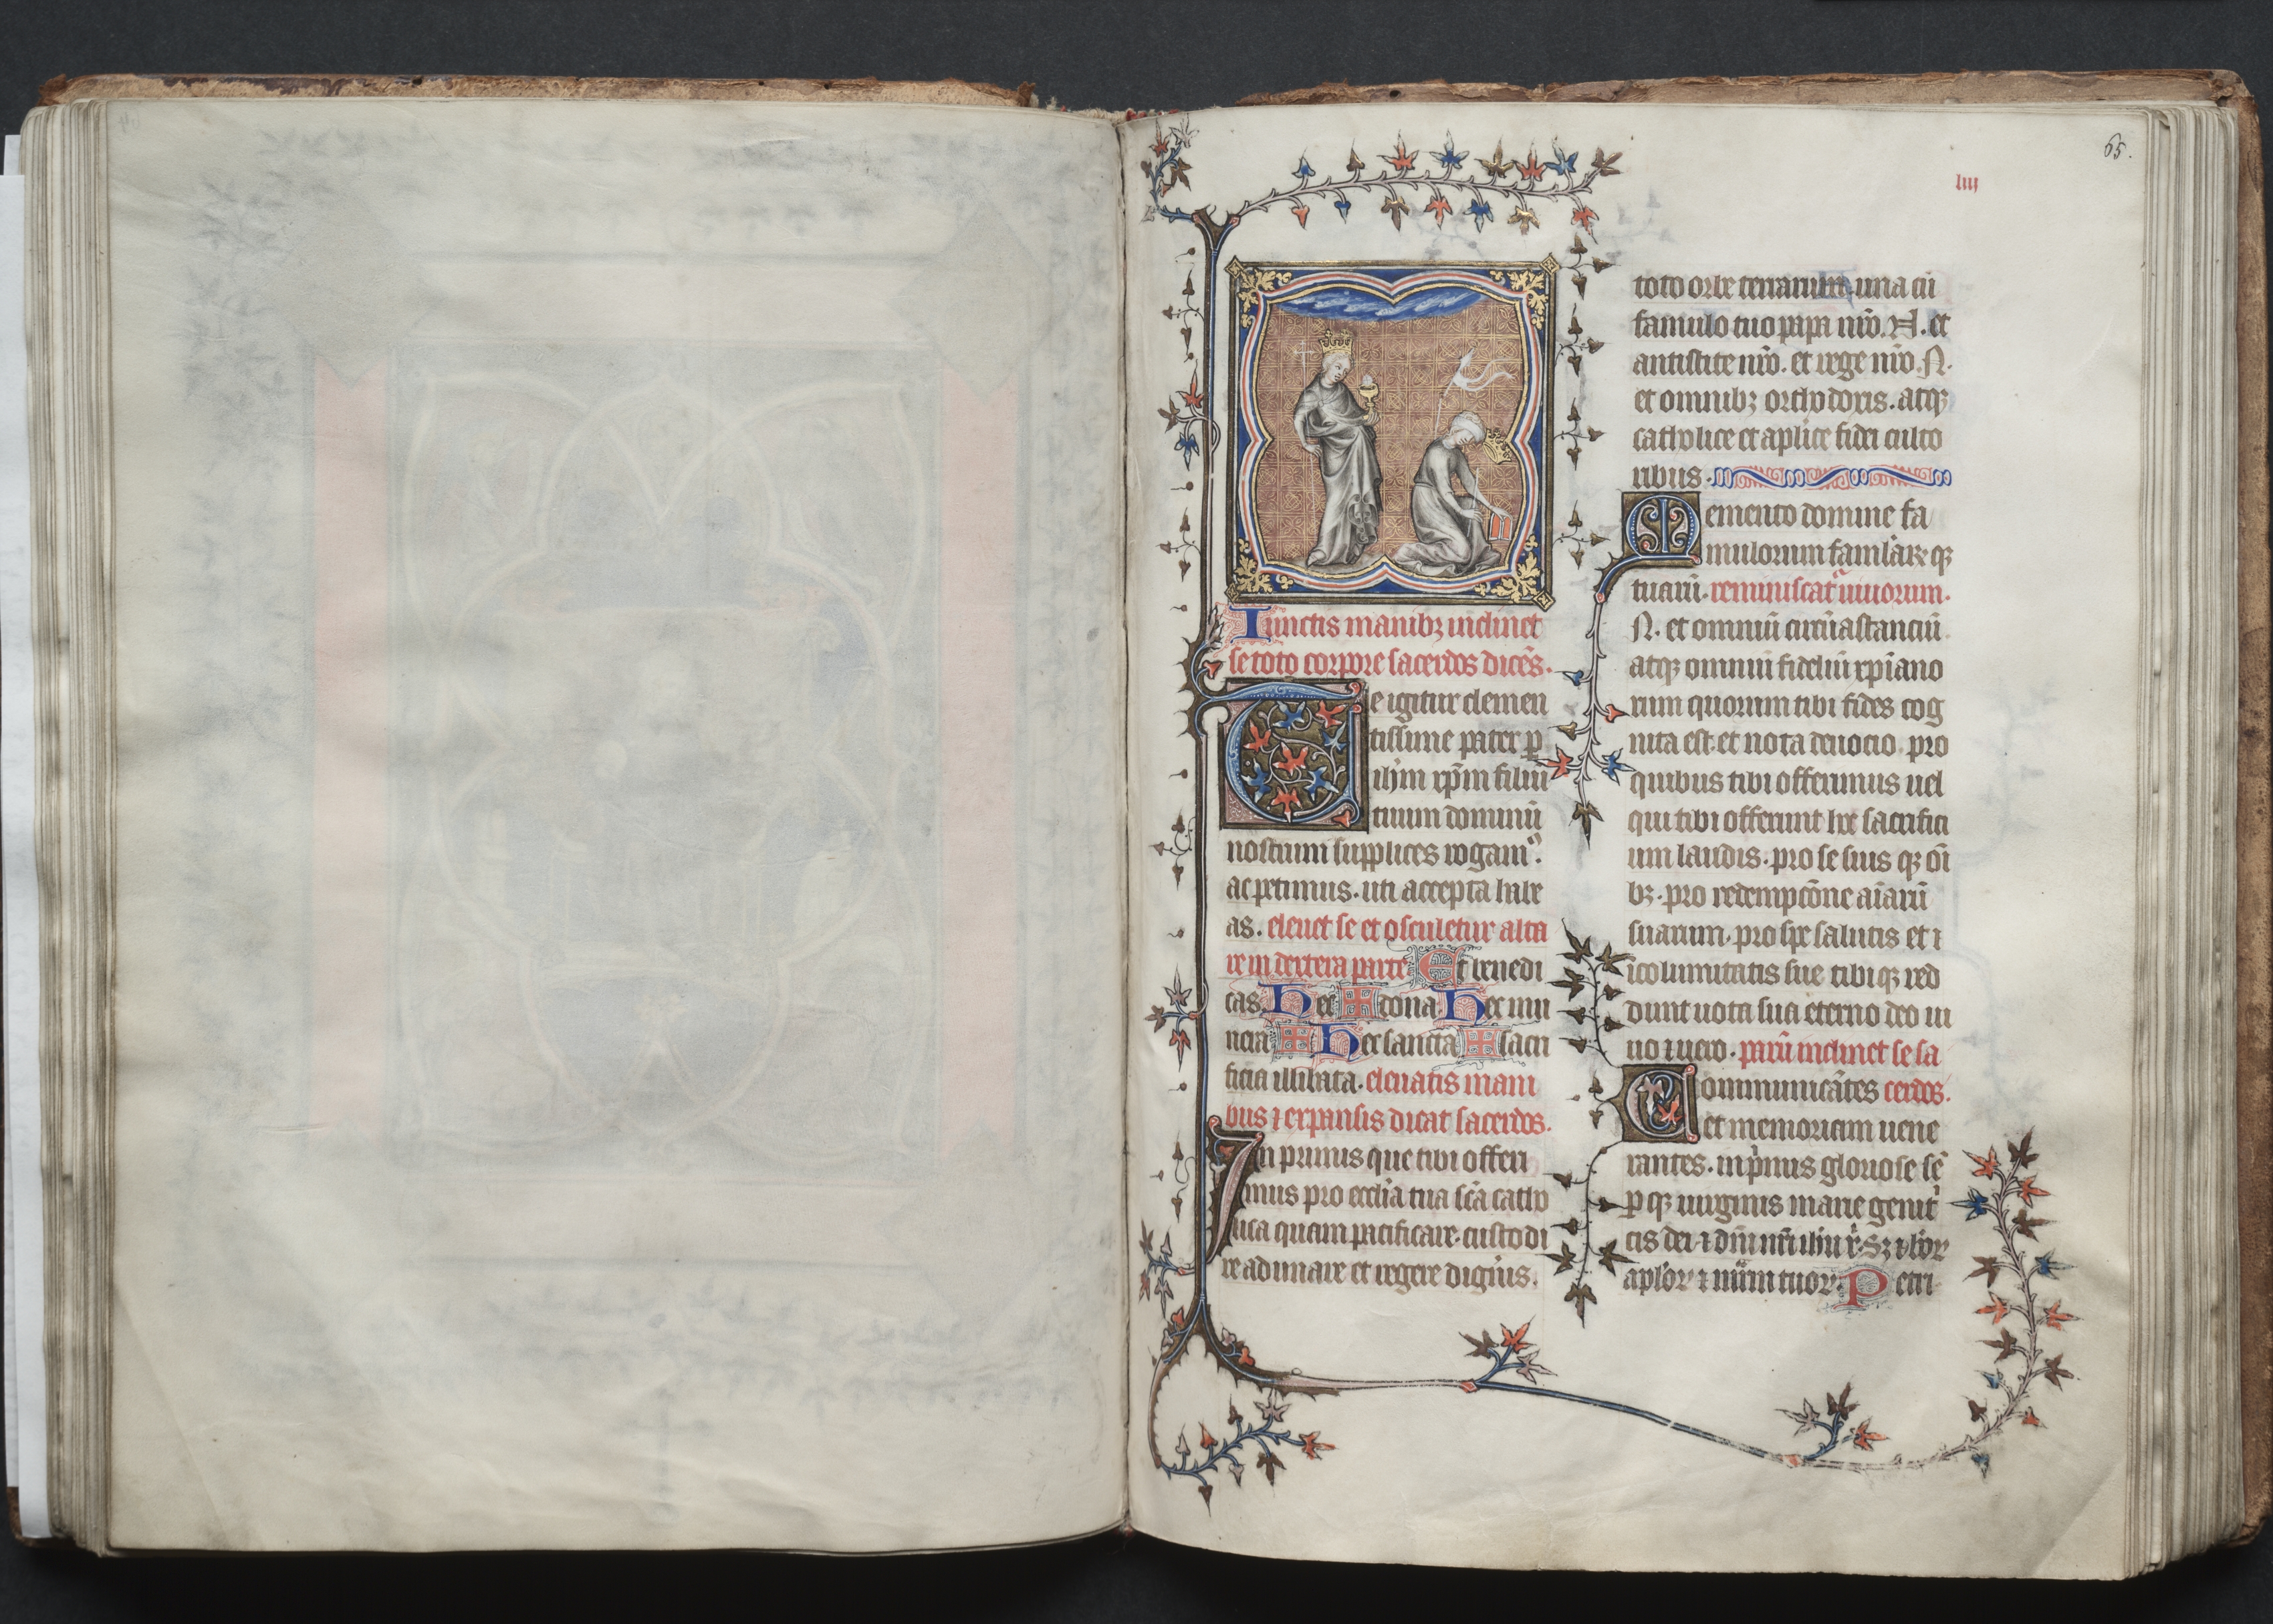 65.
liiij
Iunctis manibꝫ inclinet
se toto corpore sacerdos dicēs.
Te igitur clemen
tissime pater ꝑ
ihm xp̄m filiū
tuum dominū
nostrum supplices rogamꝰ.
ac petimus. uti accepta habe
as. eleuet se et osculetur alta
re in dextera parte Et benedi
cas. Hec ✠ dona. Hec mu
nera ✠ Hec sancta ✠ sacri
ficia illibata. eleuatis mani
bus ⁊ expansis dicat sacerdos.
In primis que tibi offeri
mus pro eccl̄ia tua sc̄a catho
lica quam pacificare. custodi
re adunare et regere digneris.
toto orbe terrarum. una cū
famulo tuo papa nr̄o. N. et
antistite nr̄o. et rege nr̄o. N.
et omnibꝫ orthodoxis. atqꝫ
catholice et aplice fidei culto
ribus.
Memento domine fa
mulorum famularꝝ qꝫ
tuarū. reminiscatᷣ uiuorum.
N. et omniū circūastanciū
atqꝫ omniū fideliū xp̄iano
rum quorum tibi fides cog
nita est. et nota deuocio. pro
quibus tibi offerimus uel
qui tibi offerunt hoc sacrifici
um laudis. pro se suis qꝫ oī
bꝫ. pro redempcōne aīarū
suarum. pro spe salutis et ī
icolumitatis sue tibi qꝫ red
dunt uota sua eterno deo ui
uo ⁊ uero. parū inclinet se sa
Communicātes cerdos.
et memoriam uene
rantes. inpͥmis gloriose sē
ꝑ qꝫ uirginis marie genitͥ
cis dei ⁊ dn̄i nr̄i ihu x. Sꝫ ⁊ bōꝝ
aplōꝝ ⁊ mr̄m tuoꝝ. Petri